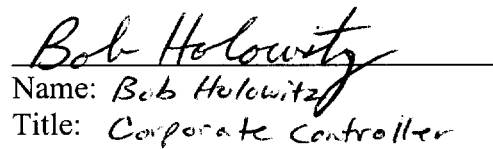 Bob Holowitz
Name: Bob Holowitz
Title: Corporate Controller